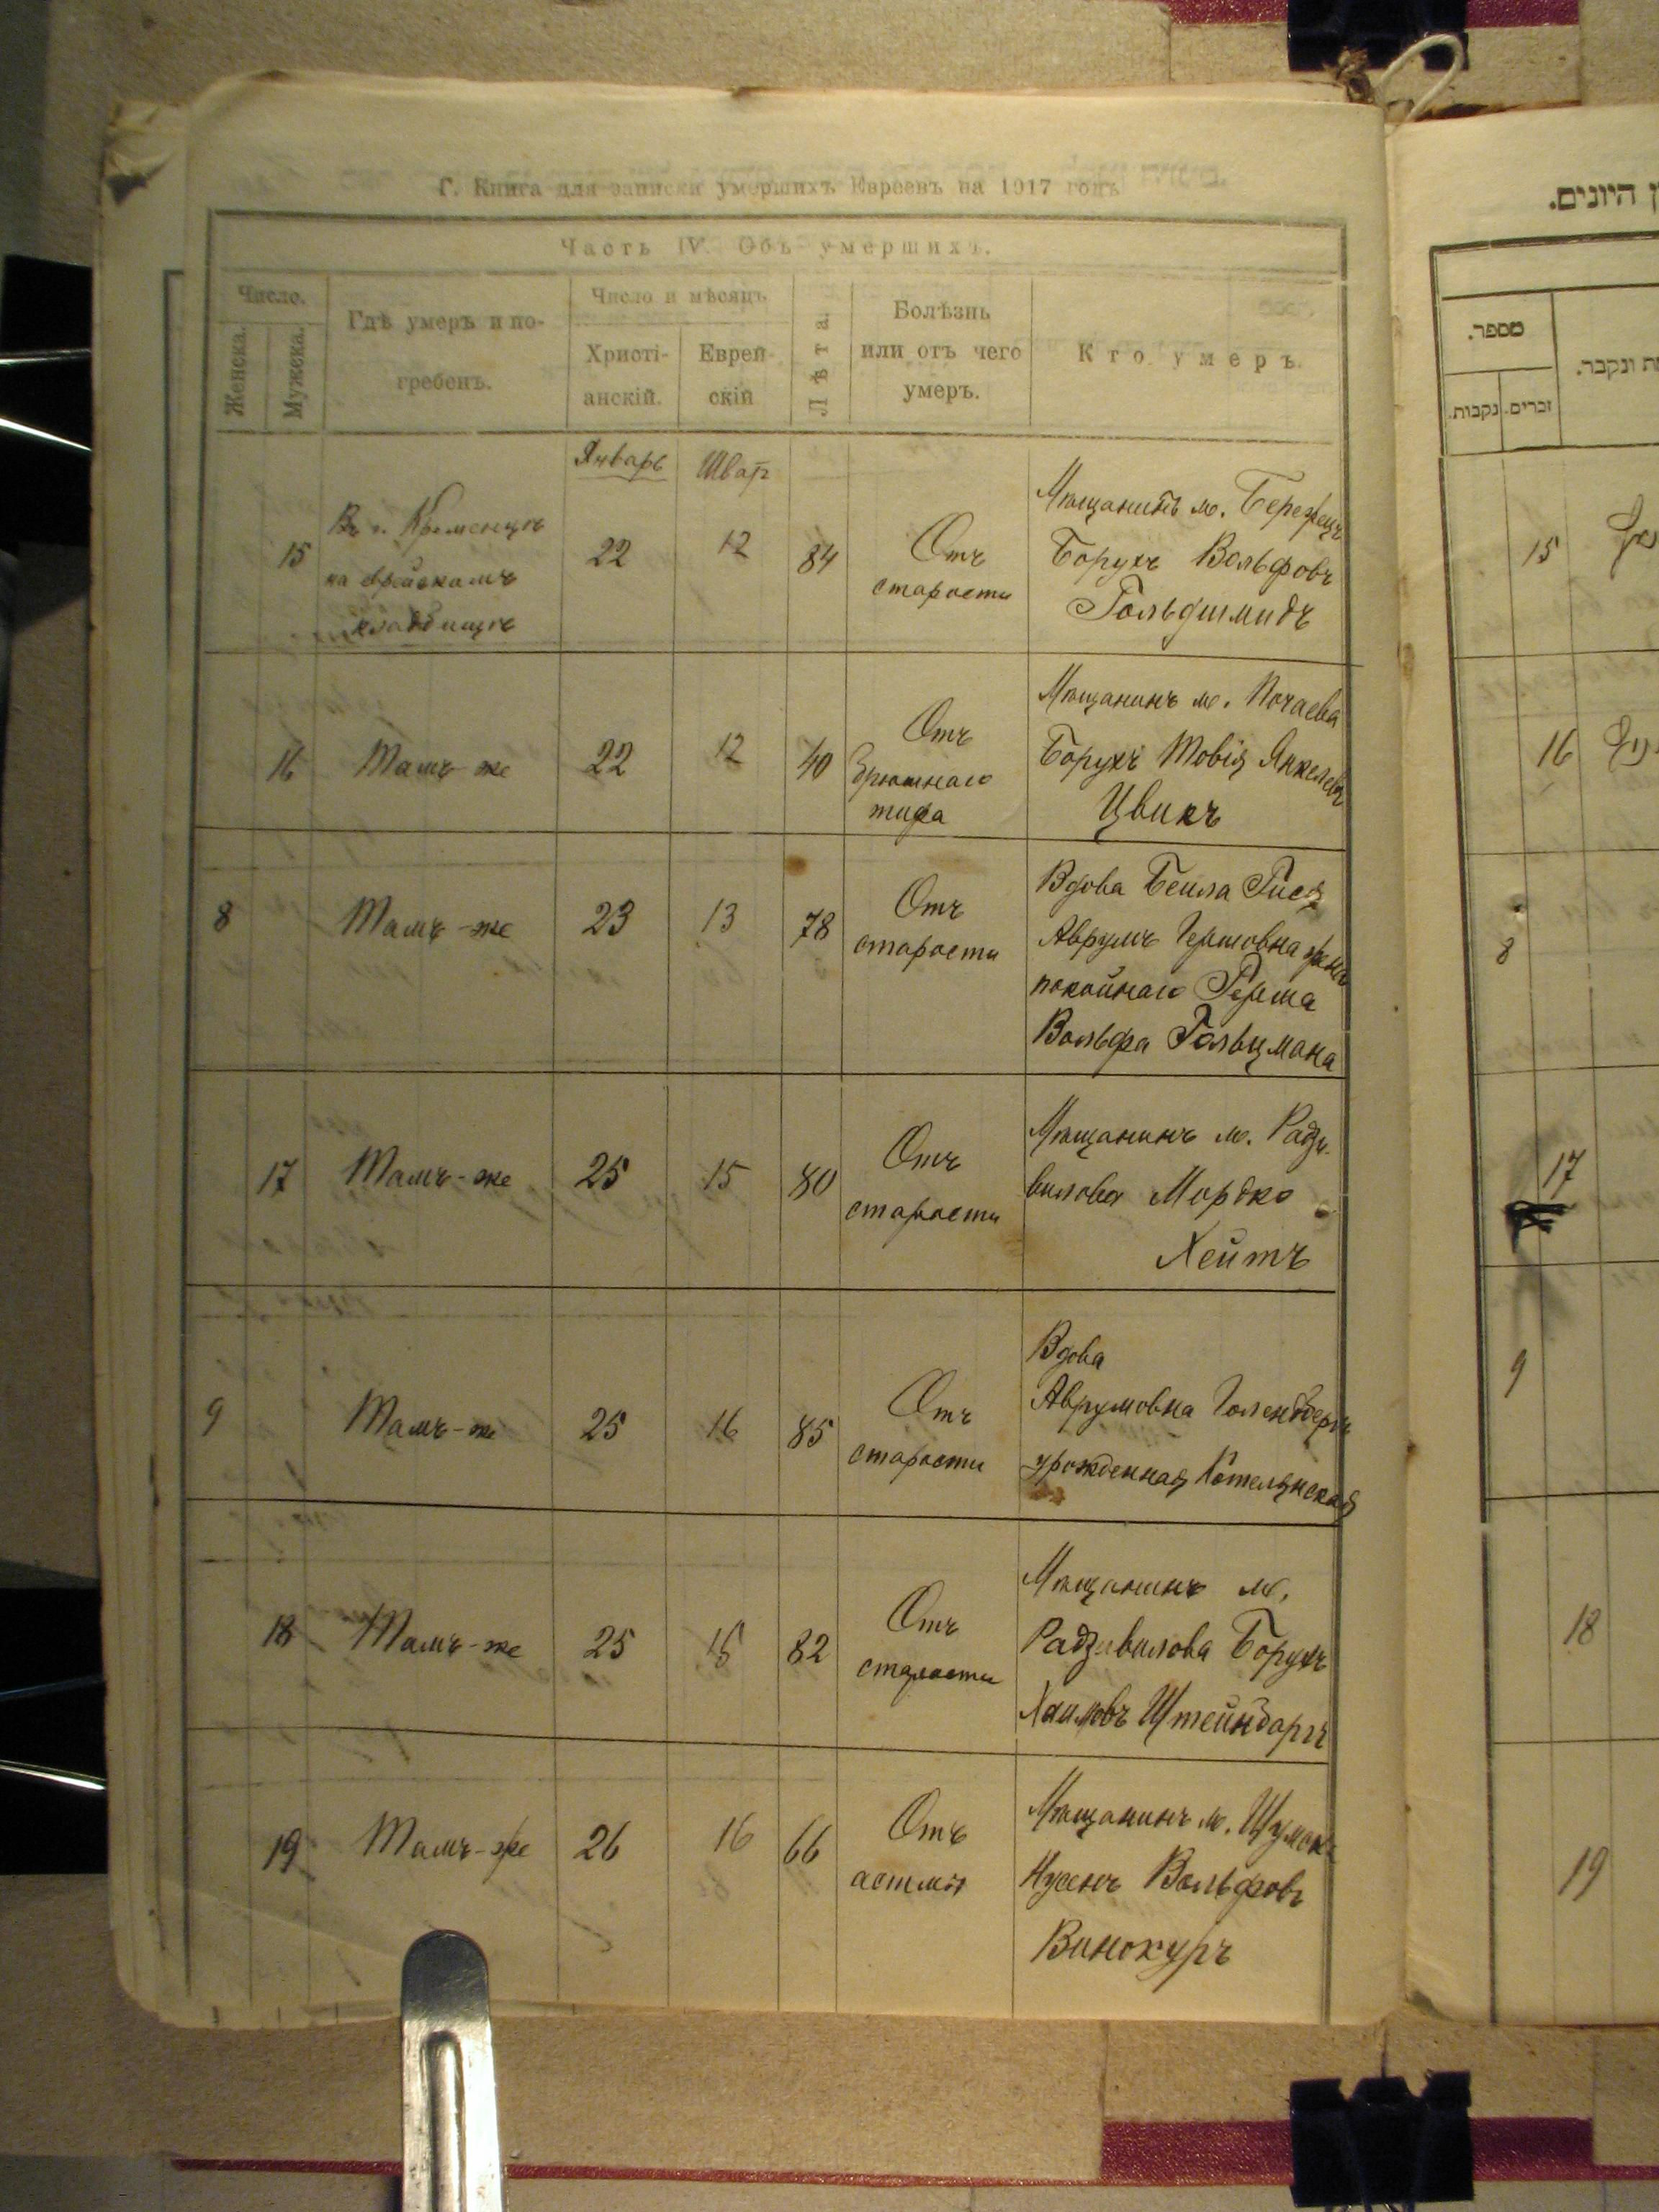 Г. Книга для записки умершихъ Евреевъ на 1917 годъ
Часть IV. Объ умершихъ.
Число.
Женска.
Мужеска.
Гдѣ умеръ и по-
гребенъ.
Число и мѣсяцъ
Христі-
анскій.
Еврей-
скій
Лѣта.
Болѣзнь
или отъ чего
умеръ.
Кто умеръ.
Январь Шват
15
Въ г. Кременцѣ
на еврейскомъ
кладбищѣ
22
12
84
Отъ
старости
Мѣщанинъ м. Бережецъ
Борухъ Вольфовъ
Гольдшмидъ
16
Тамъ же
22
12
40
Отъ
брюшнаго
тифа
Мѣщанинъ м. Почаева
Борухъ Товія Янкелевъ
Цвикъ
8
Тамъ-же
23
13
78
Отъ
старости
Вдова Бейла Гися
Аврумъ Гершовна жена
покойнаго Герша
Вольфа Гольцмана
17
Тамъ-же
25
15
80
Отъ
старости
Мѣщанинъ м. Радзи-
вилова Мордко
Хейтъ
9
Тамъ-же
25
16
85
Отъ
старости
Вдова
Аврумовна Голендбергъ
урожденная Котелянская
18
Тамъ-же
25
15
82
Отъ
старости
Мѣщанинъ м.
Радзивилова Борухъ
Хаимовъ Штейнбаргъ
19
Тамъ-же
26
16
66
Отъ
астмы
Мѣщанинъ м. Шумскъ
Нусенъ Вольфовъ
Винокуръ
היונים.
מספר.
נקבות.
זכרים.
ונקבר.
15
16
8
17
9
18
19